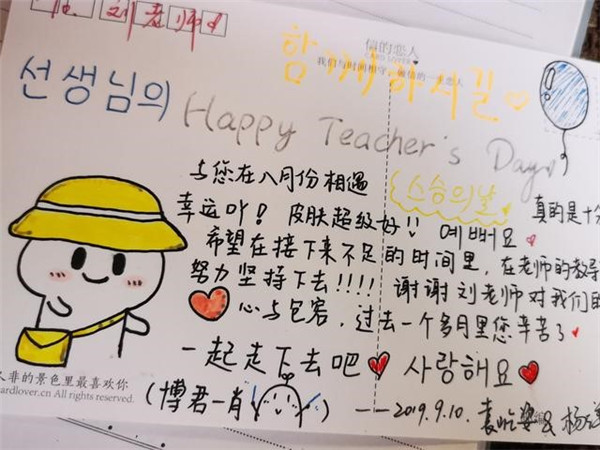 刘老师
信的恋人
CARD LOVER
我们与时间相守,做信的一生恋人
함께하시길
선생님의
Happy Teacher's Day
与您在八月份相遇
스승의날
真的是十分
幸运吖! 皮肤超级好!! 예뻐요
希望在接下来不足的时间里,在老师的教导
努力坚持下去!!!! 谢谢刘老师对我们的
心与包容,过去一个多月里您辛苦了
一起走下去吧 사랑해요
人非的景色里最喜欢你
ardlover.cn All rights reserved.
(博君一肖 )
——2019.9.10.